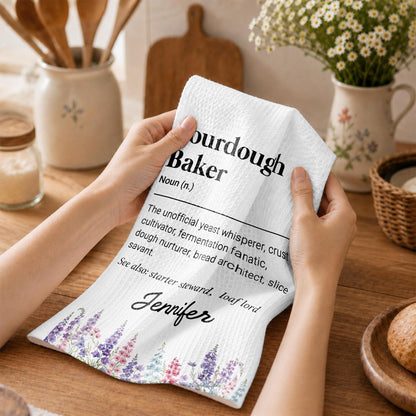 ourdough
Baker
Noun (n.)
The unofficial yeast whisperer, crust
cultivator, fermentation fanatic,
dough nurturer, bread architect, slice
savant.
See also: starter steward, loaf lord
Jennifer